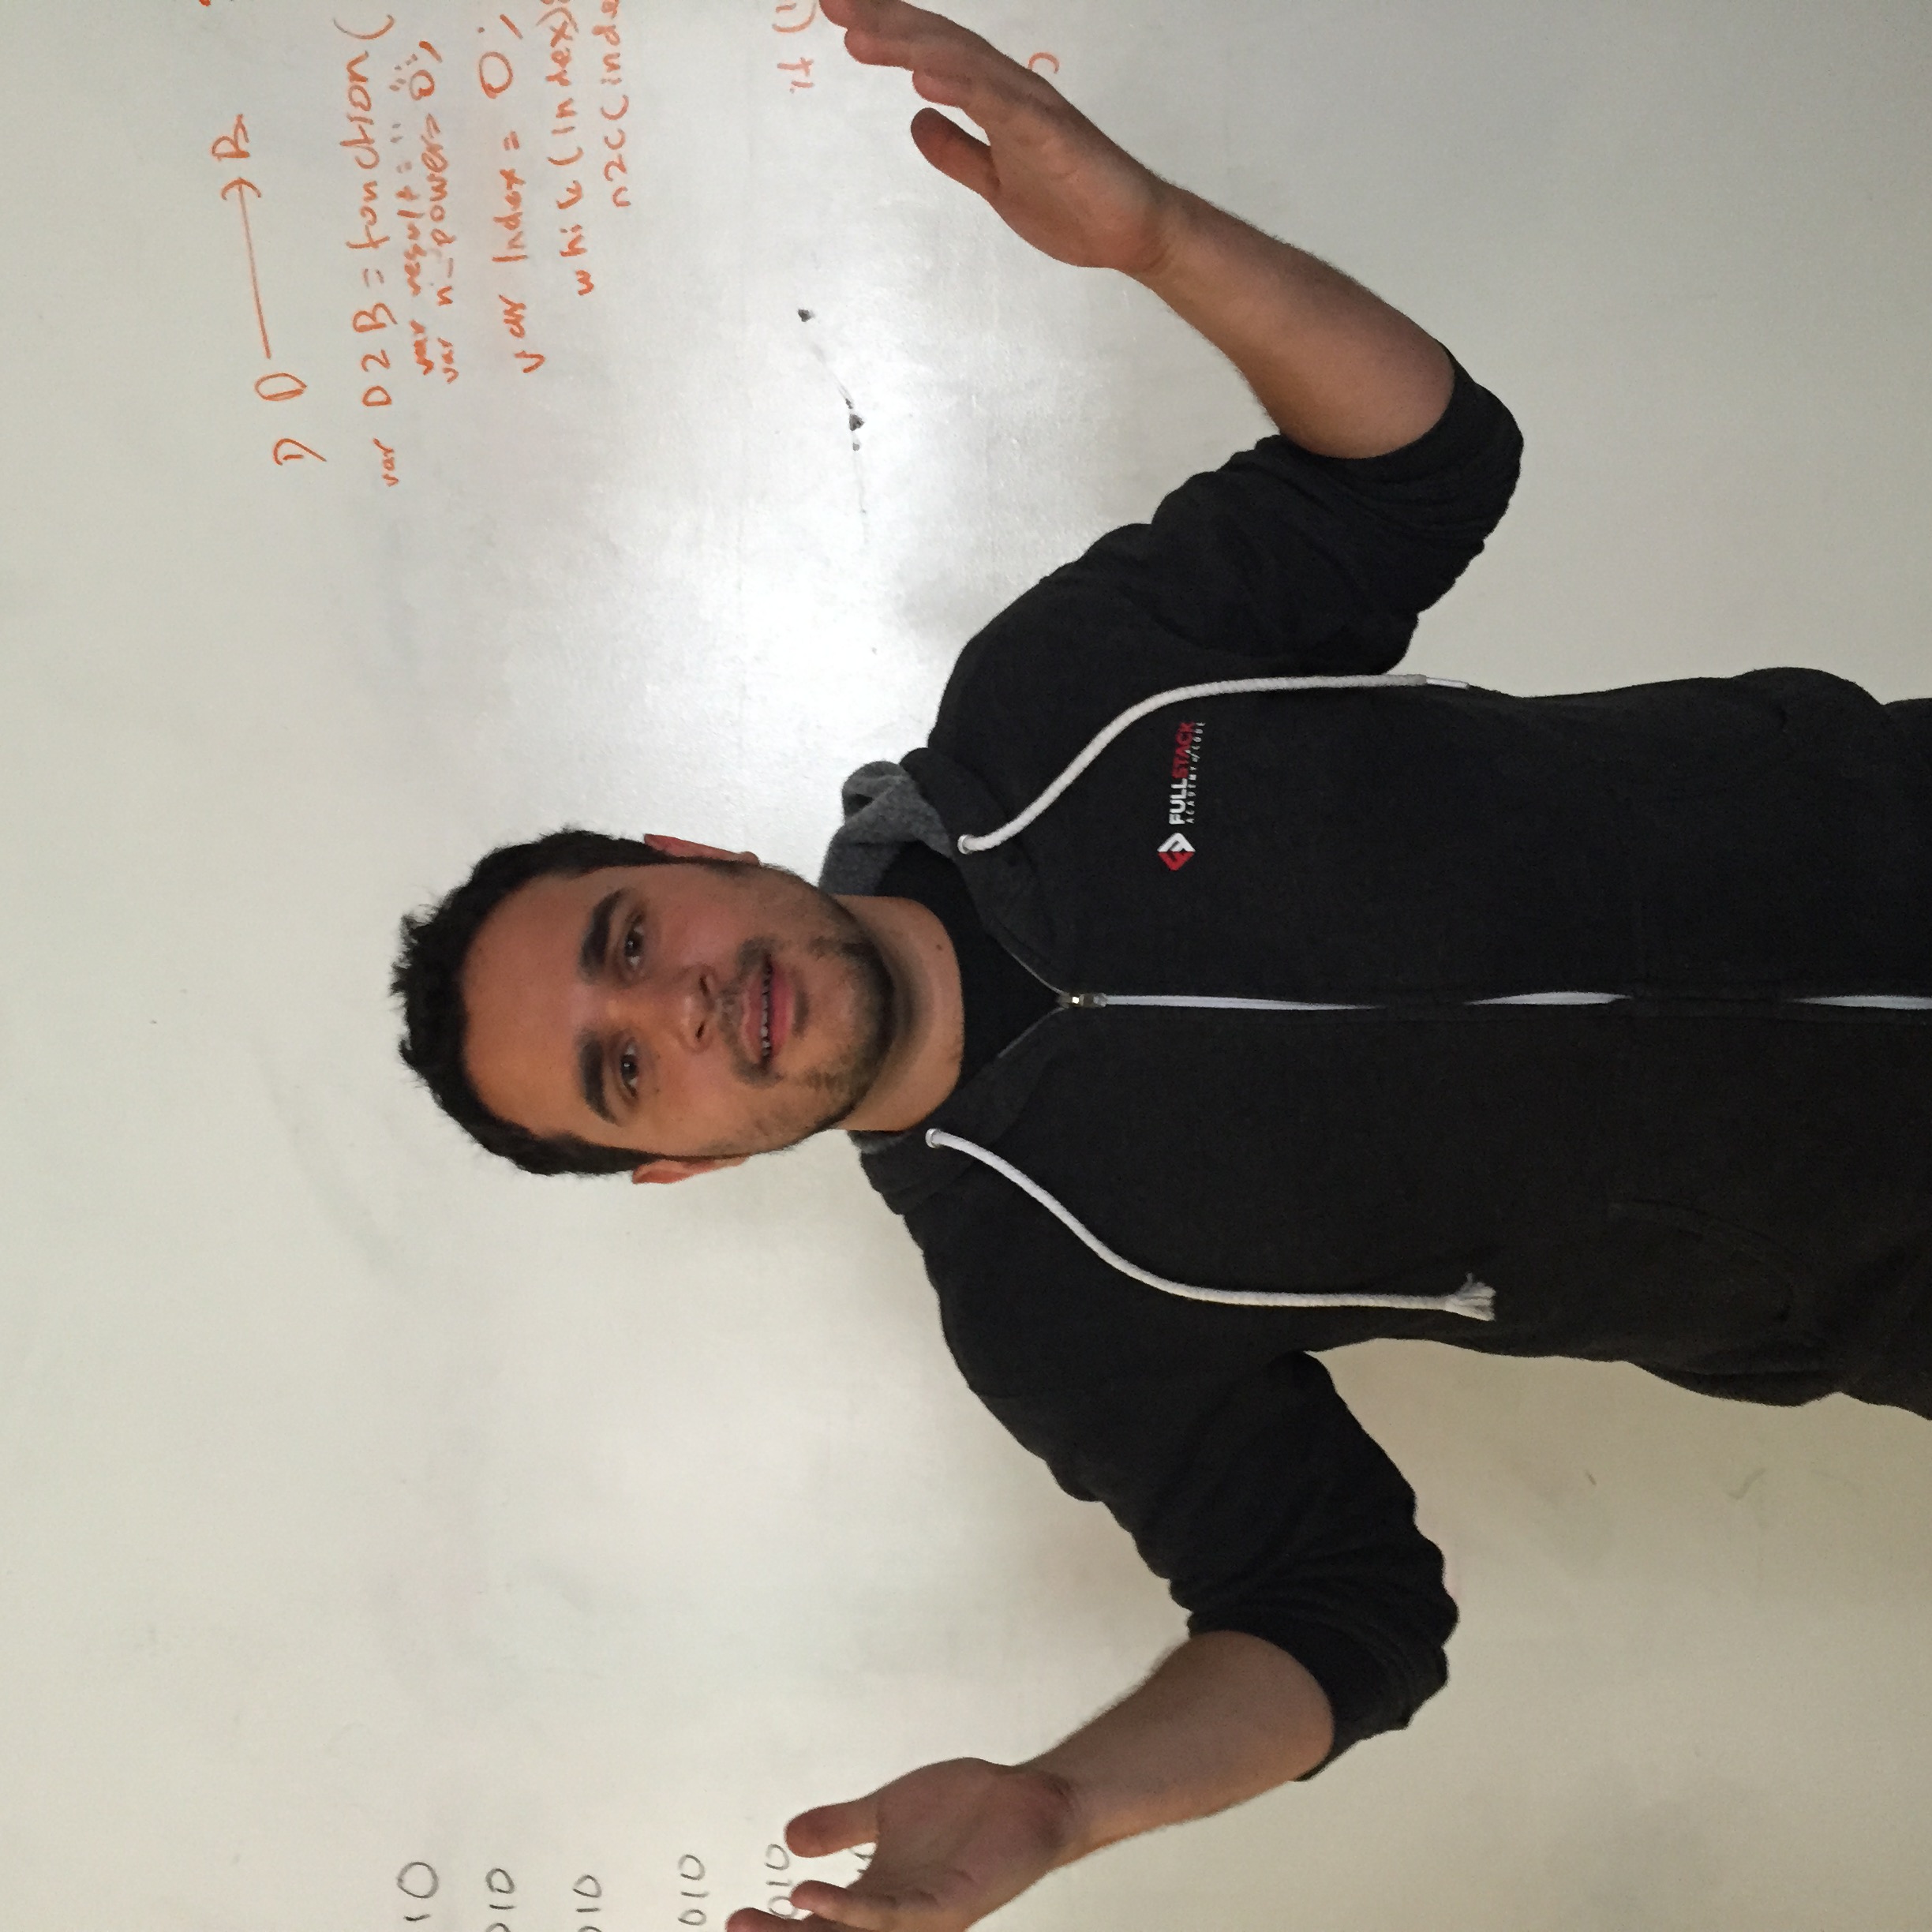 10
010
010
010
010
1) D → B
var D2B = function(
var result = "";
var n_power = 0;
var Index = 0;
while (index)
n2c(inde
if (1
FULLSTACK
ACADEMY of CODE